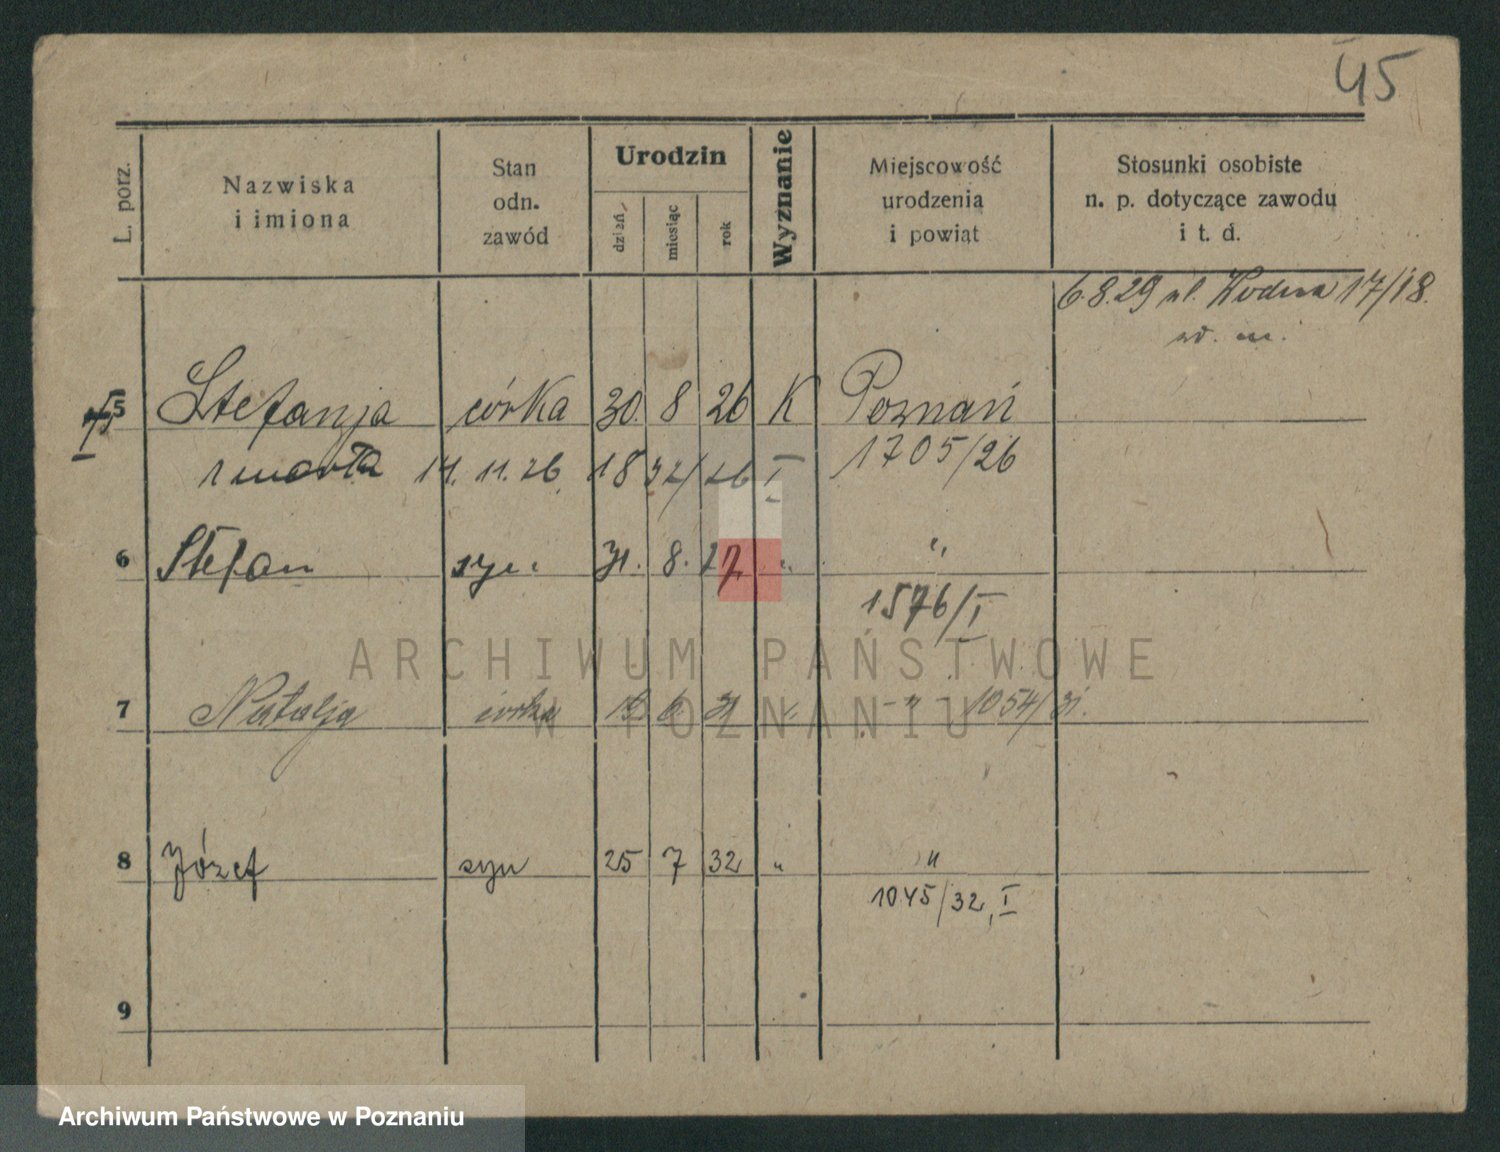 45
L. porz.
Nazwiska i imiona
Stan odn. zawód
Urodzin
dzień, miesiąc rok
Wyznanie
Miejscowość urodzenia i powiąt
Stosunki osobiste n. p. dotyczące zawodu i t. d.
6.8.29 ul. Wodna 17/18.
5 Stefanja córka 30. 8 26 K Poznań
zmarła 14. 11. 26. 1832/26 I 1705/26
6 Stefan syn 31. 8. 27. " "
1576/I
ARCHIWUM PAŃSTWOWE
W POZNANIU
7 Natalja córka 6. 31 " - " 1054/31.
8 Józef syn 25 7 32 " "
1045/32, I
9
Archiwum Państwowe w Poznaniu